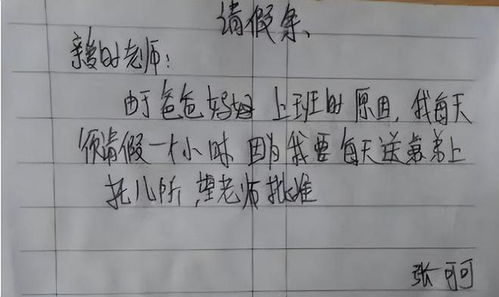 请假条、
亲爱的老师：
由于爸爸妈妈上班的原因，我每天
须请假一个小时因为我要每天送弟弟上
托儿所，望老师批准
张可可